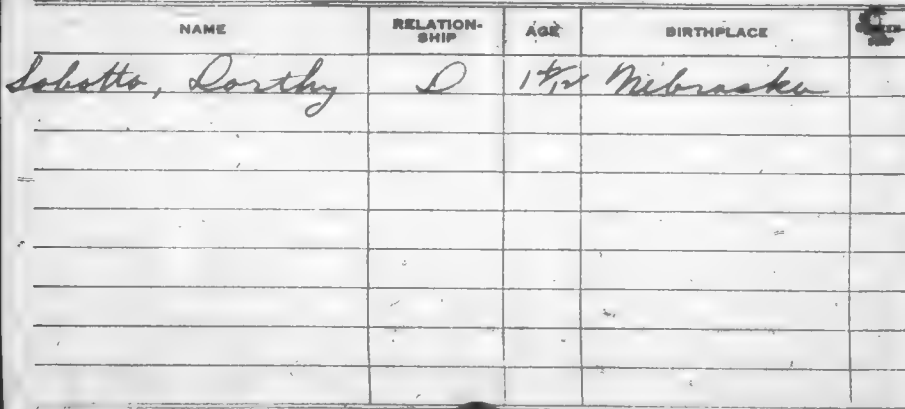 NAME RELATION-SHIP AGE BIRTHPLACE
Sobotto, Dorthy D Nebraska